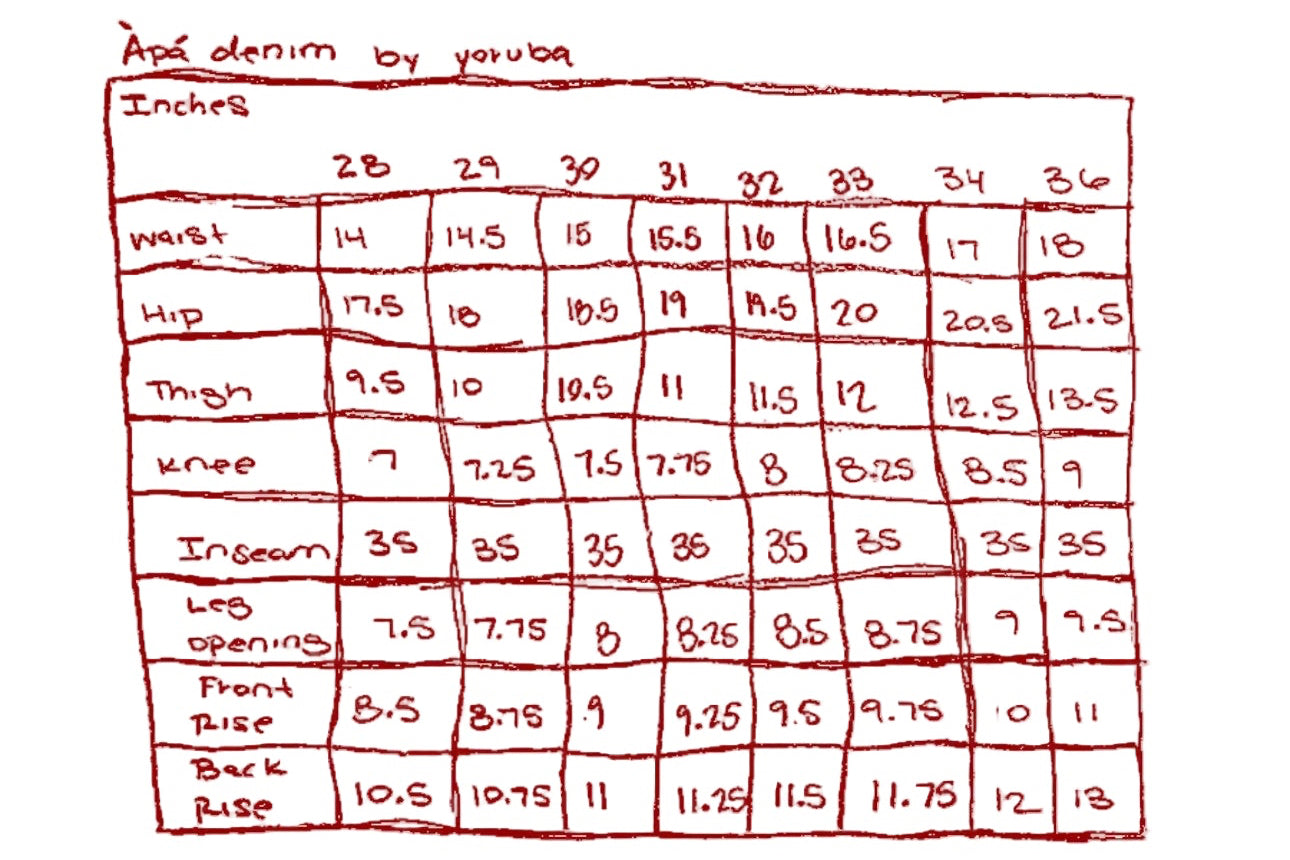 Àpá denim by yoruba
Inches
28 29 30 31 32 33 34 36
Waist 14 14.5 15 15.5 16 16.5 17 18
Hip 17.5 18 18.5 19 19.5 20 20.5 21.5
Thigh 9.5 10 10.5 11 11.5 12 12.5 13.5
Knee 7 7.25 7.5 7.75 8 8.25 8.5 9
Inseam 35 35 35 35 35 35 35 35
Leg
opening 7.5 7.75 8 8.25 8.5 8.75 9 9.5
Front
Rise 8.5 8.75 9 9.25 9.5 9.75 10 11
Back
Rise 10.5 10.75 11 11.25 11.5 11.75 12 13